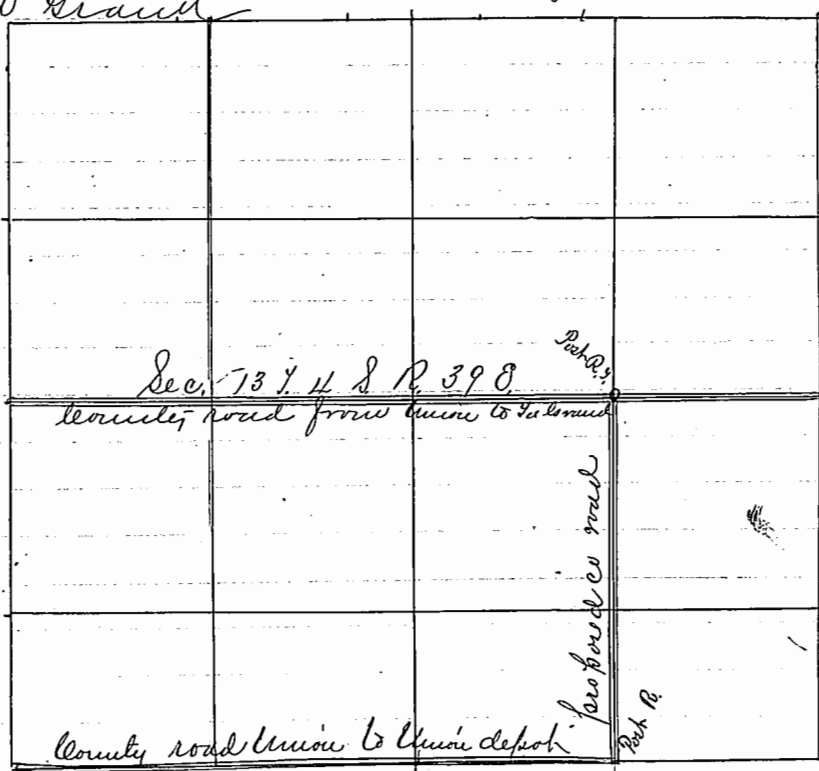 Sec. 13 T. 4 S R. 39 E.
Post R.
County road from Union to
proposed co road
County road Union to Union depot
Post R.